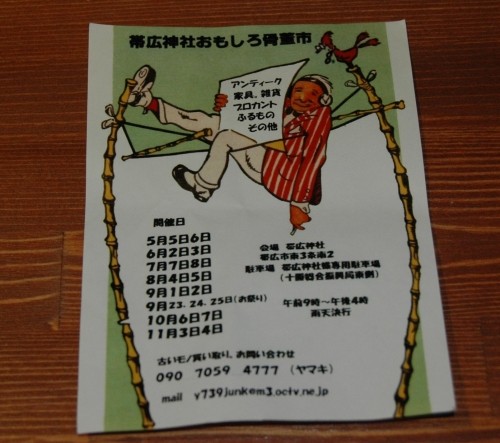 帯広神社おもしろ骨董市
アンティーク
家具、雑貨
ブロカント
ふるもの
その他
開催日
5月5日6日
6月2日3日
7月7日8日
8月4日5日
9月1日2日
9月23.24.25日(お祭り)
10月6日7日
11月3日4日
会場 帯広神社
帯広市東3条南2
駐車場 帯広神社様専用駐車場
(十勝総合振興局東側)
午前9時〜午後4時
雨天決行
古いモノ買い取り、お問い合わせ
090 7059 4777 (ヤマキ)
mail y739junk@m3.octv.ne.jp